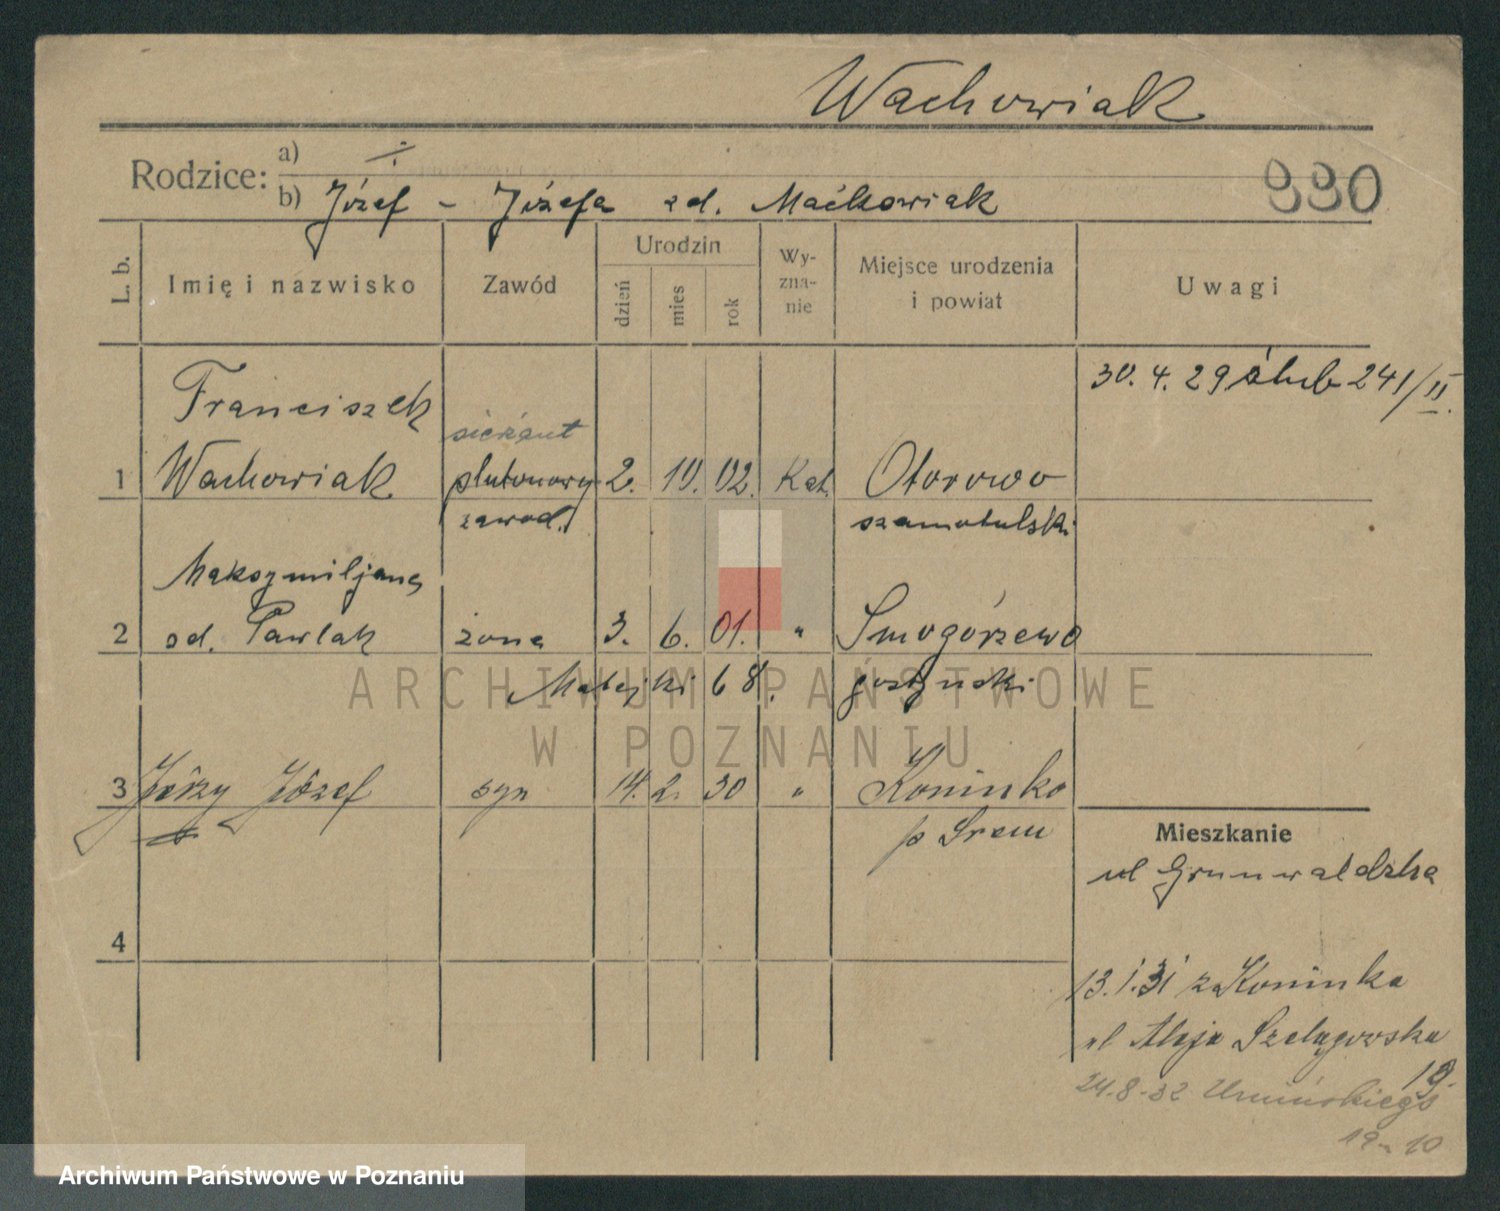 Wachowiak
Rodzice: a) ÷
b) Józef - Józefa zd. Maćkowiak
330
L. b.
Imię i nazwisko
Zawód
Urodzin
dzień
mies
rok
Wy-
zna-
nie
Miejsce urodzenia
i powiat
Uwagi
30. 4. 29 ślub 241/II.
Franciszek
sierżant
1 Wachowiak plutonowy 2. 10. 02. Kat. Otorowo
zawod. szamotulski
Maksymiljana
2 zd. Pawlak żona 3. 6. 01. " Smogórzewo
Matejki 68. gostyński
3 Jerzy Józef syn 14. 2. 30 " Koninko
p Śrem
Mieszkanie
ul Grunwaldzka
4
13.1.31 z Koninka
ul Aleja Szelągowska
19.
24.8.32 Umińskiego
19 - 10
ARCHIWUM PAŃSTWOWE
W POZNANIU
Archiwum Państwowe w Poznaniu